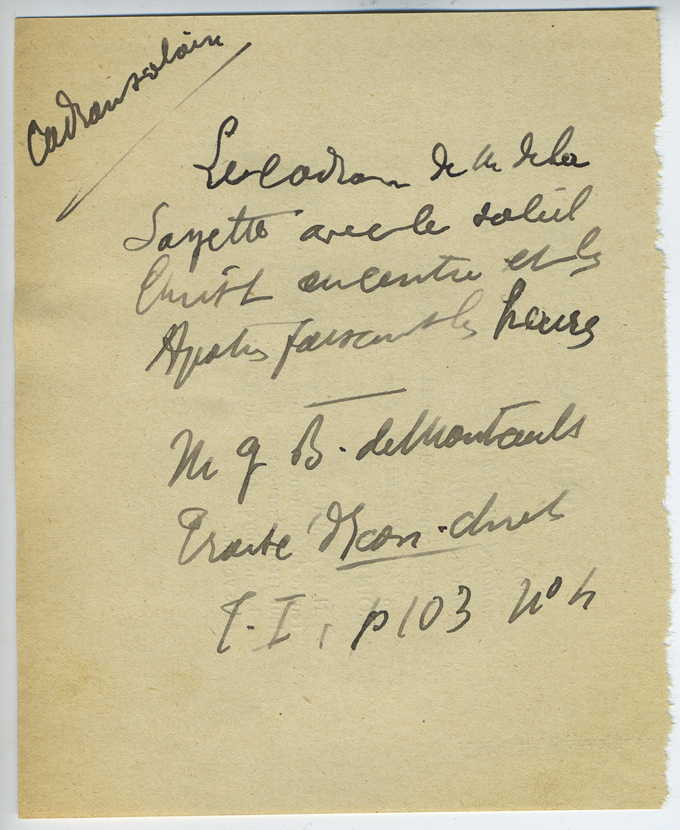 Cadran solaire
Le cadran de M de la
Sayette avec le soleil
Christ au centre et les
Apotres faisant les heures
Mg B. de Montault
Traité d'Icon. chret
T. I, p 103 n° 4